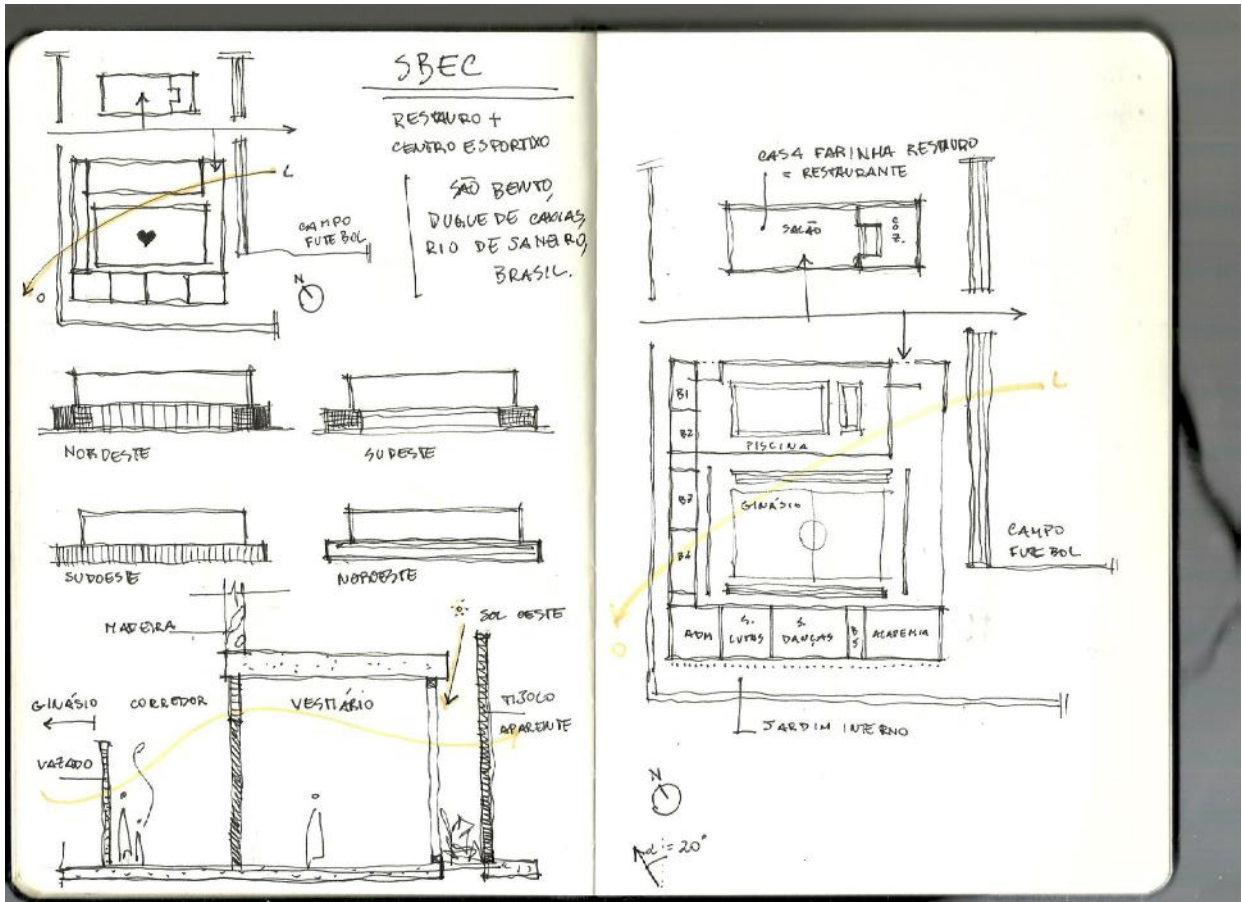 SBEC
RESTAURO +
CENTRO ESPORTIVO
SÃO BENTO,
DUQUE DE CAXIAS,
RIO DE JANEIRO,
BRASIL.
L
CAMPO
FUTEBOL
O
N
NORDESTE
SUDESTE
SUDOESTE
NOROESTE
MADEIRA
SOL OESTE
GINÁSIO
CORREDOR
VESTIÁRIO
TIJOLO
APARENTE
VAZADO
CASA FARINHA RESTAURO
= RESTAURANTE
SALÃO
COZ.
L
B1
B2
PISCINA
B3
GINÁSIO
B4
CAMPO
FUTEBOL
ADM
S.
LUTAS
S.
DANÇAS
B5
ACADEMIA
O
JARDIM INTERNO
N
= 20°